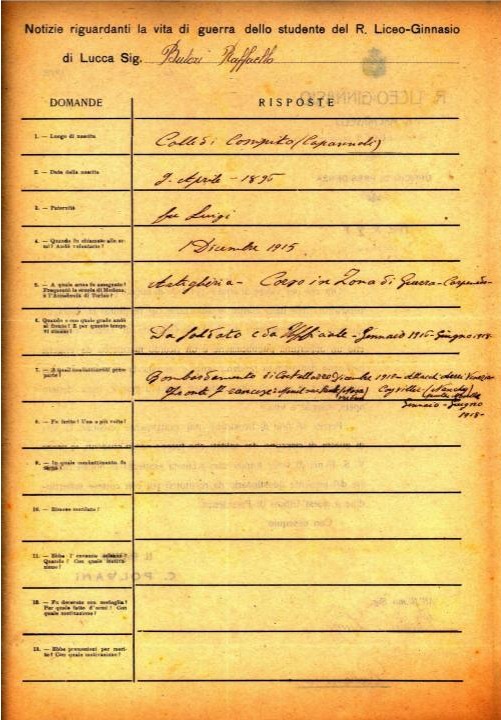 Notizie riguardanti la vita di guerra dello studente del R. Liceo-Ginnasio
di Lucca Sig. Raffaello
DOMANDE RISPOSTE
1. — Luogo di nascita Colle di Compito (Capannoli)
2. — Data della nascita 9. Aprile - 1896
3. — Paternità fu Luigi
4. — Quando fu chiamato alle armi? Andò volontario? 1 Dicembre 1915
5. — A quale arma fu assegnato? Artiglieria - Corso in Zona di Guerra -
Frequentò la scuola di Modena,
o l'Accademia di Torino?
6. Quando e con quale grado andò Da Soldato e da Ufficiale - Gennaio 1916 - Giugno 1918 -
al fronte? E per quanto tempo
vi rimase?
7. — A quali combattimenti prese Bombardamento di 1918 -
parte? Fronte Francese -
Gennaio - Giugno
1918 -
8. — Fu ferito? Una o più volte?
9. — In quale combattimento fu
10. — Rimase mutilato?
11. — Ebbe
Quando? Con quale motivazione?
12. — Fu decorato con medaglia?
Per quale fatto d'armi? Con
quale motivazione?
13. — Ebbe promozioni per merito? Con quale motivazione?